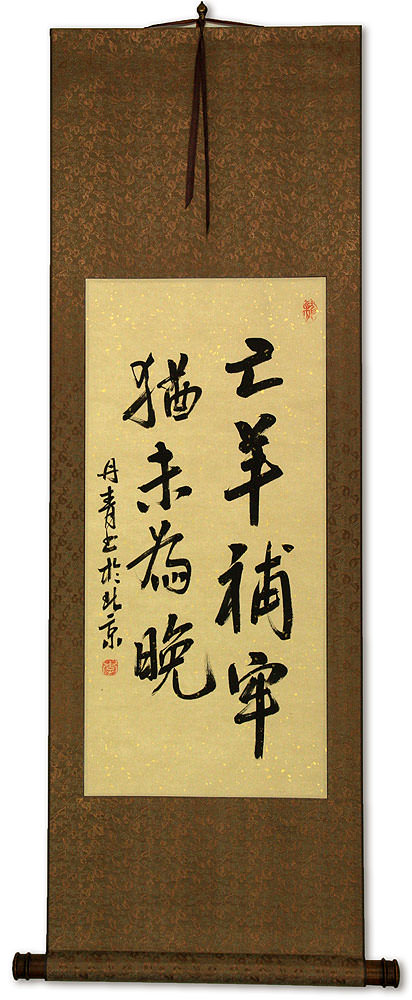 亡羊補牢
猶未為晚
丹青书於北京